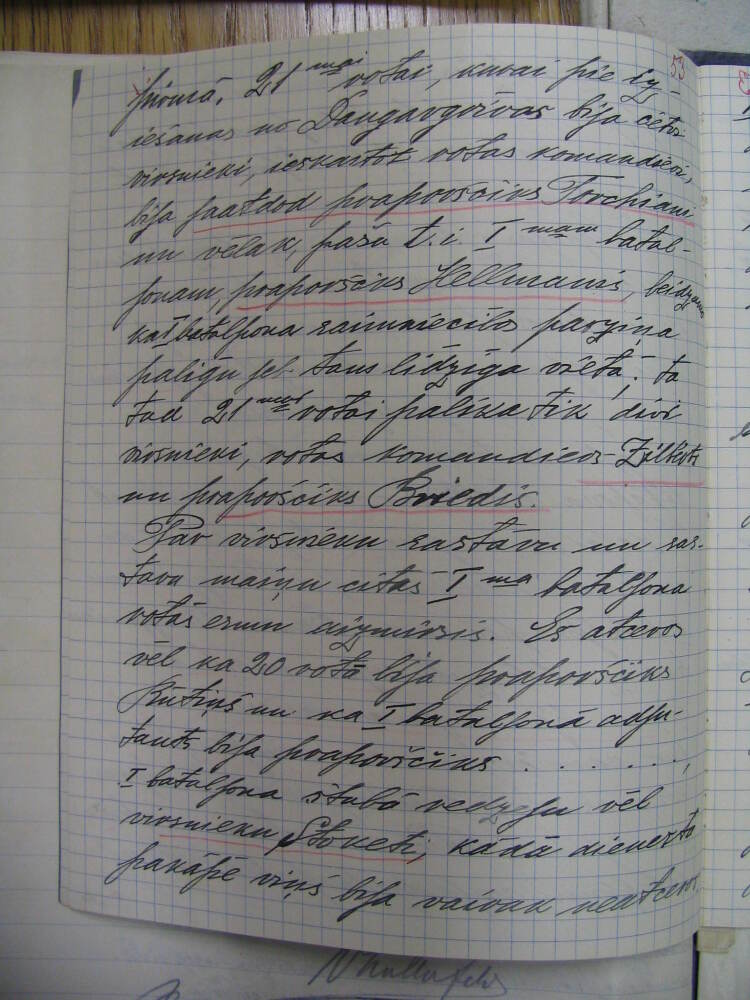 53
pirmā. 21 mai rotai, kurai pie iz-
iešanas no Daugavgrīvas bija četri
virsnieki, ieskaitot rotas komandieri,
bija jaatdod praporščiks Torchiani
un vēlak, paša t. i. I mam batal-
jonam, praporščiks Hellmanis, beidzamais
kā I bataljona saimniecības pārziņa
palīgu jeb tam līdzīgā vietā; ta
tad 21 mai rotai palika tik divi
virsnieki, rotas komandieris Zilberts
un praporščiks Briedis.
Par virsnieku sastavu un sas-
tava maiņu citās I ma bataljona
rotās esmu aizmirsis. Es atceros
vēl ka 20 rotā bija praporščiks
Kūtiņš un ka I bataljonā adju-
tants bija praporščiks . . . . . . . ,
I bataljona štabā redzeju vēl
virsnieku Stoketi, kādā dienesta
pakāpē viņš bija vairāk neatceros.